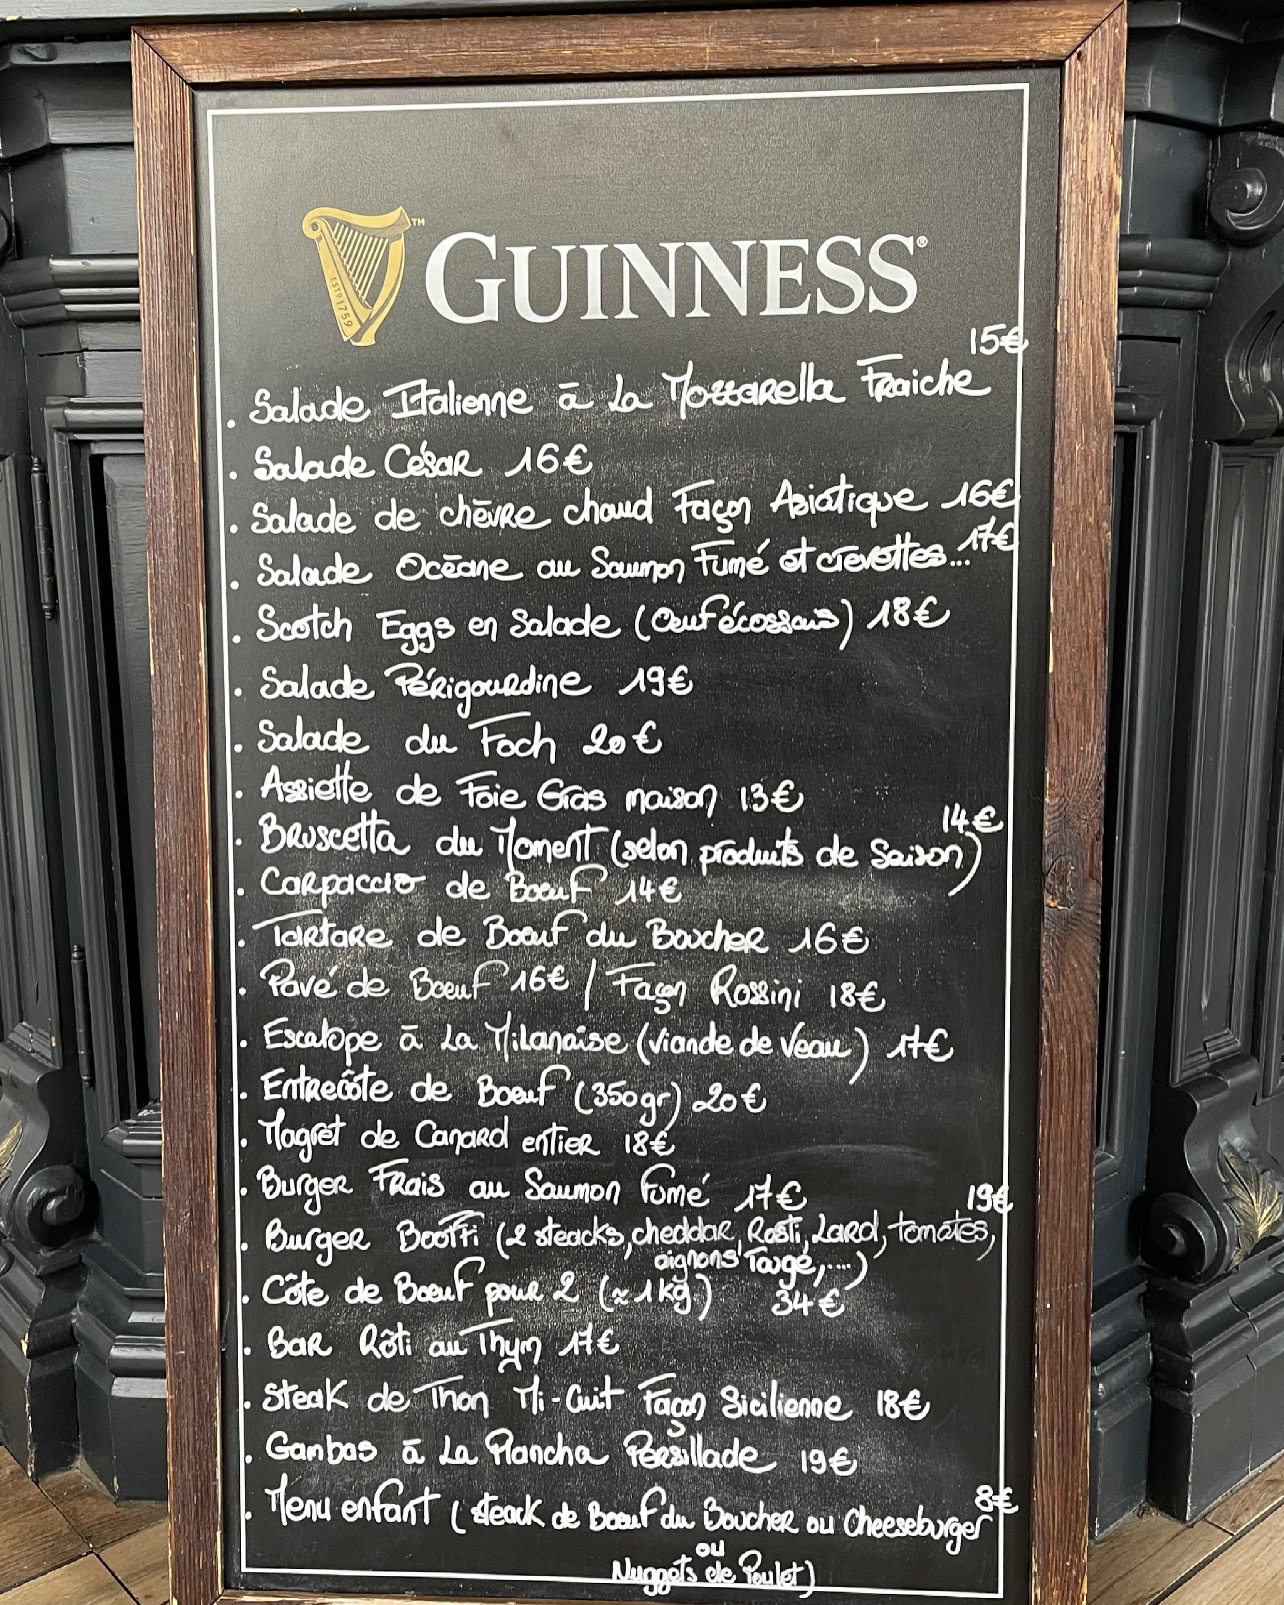 ESTD1759
™
GUINNESS®
15€
. Salade Italienne à La Mozzarella Fraiche
. Salade César 16€
. Salade de chèvre chaud Façon Asiatique 16€
. Salade Océane au Saumon Fumé et crevettes... 17€
. Scotch Eggs en Salade (Oeuf écossais) 18€
. Salade Périgourdine 19€
. Salade du Foch 20€
. Assiette de Foie Gras maison 13€
. Bruscetta du Moment (selon produits de Saison) 14€
. Carpaccio de Boeuf 14€
. Tartare de Boeuf du Boucher 16€
. Pavé de Boeuf 16€ / Façon Rossini 18€
. Escalope à La Milanaise (viande de Veau) 17€
. Entrecôte de Boeuf (350gr) 20€
. Magret de Canard entier 18€
. Burger Frais au Saumon fumé 17€
19€
. Burger (2 steacks, cheddar, Rosti, Lard, tomates,
oignons rouge, ....)
. Côte de Boeuf pour 2 (≈1kg) 34€
. Bar Rôti au Thym 17€
. Steak de Thon Mi-Cuit Façon Sicilienne 18€
. Gambas à La Plancha Persillade 19€
. Menu enfant (steack de Boeuf du Boucher ou Cheeseburger 8€
ou
Nuggets de Poulet)